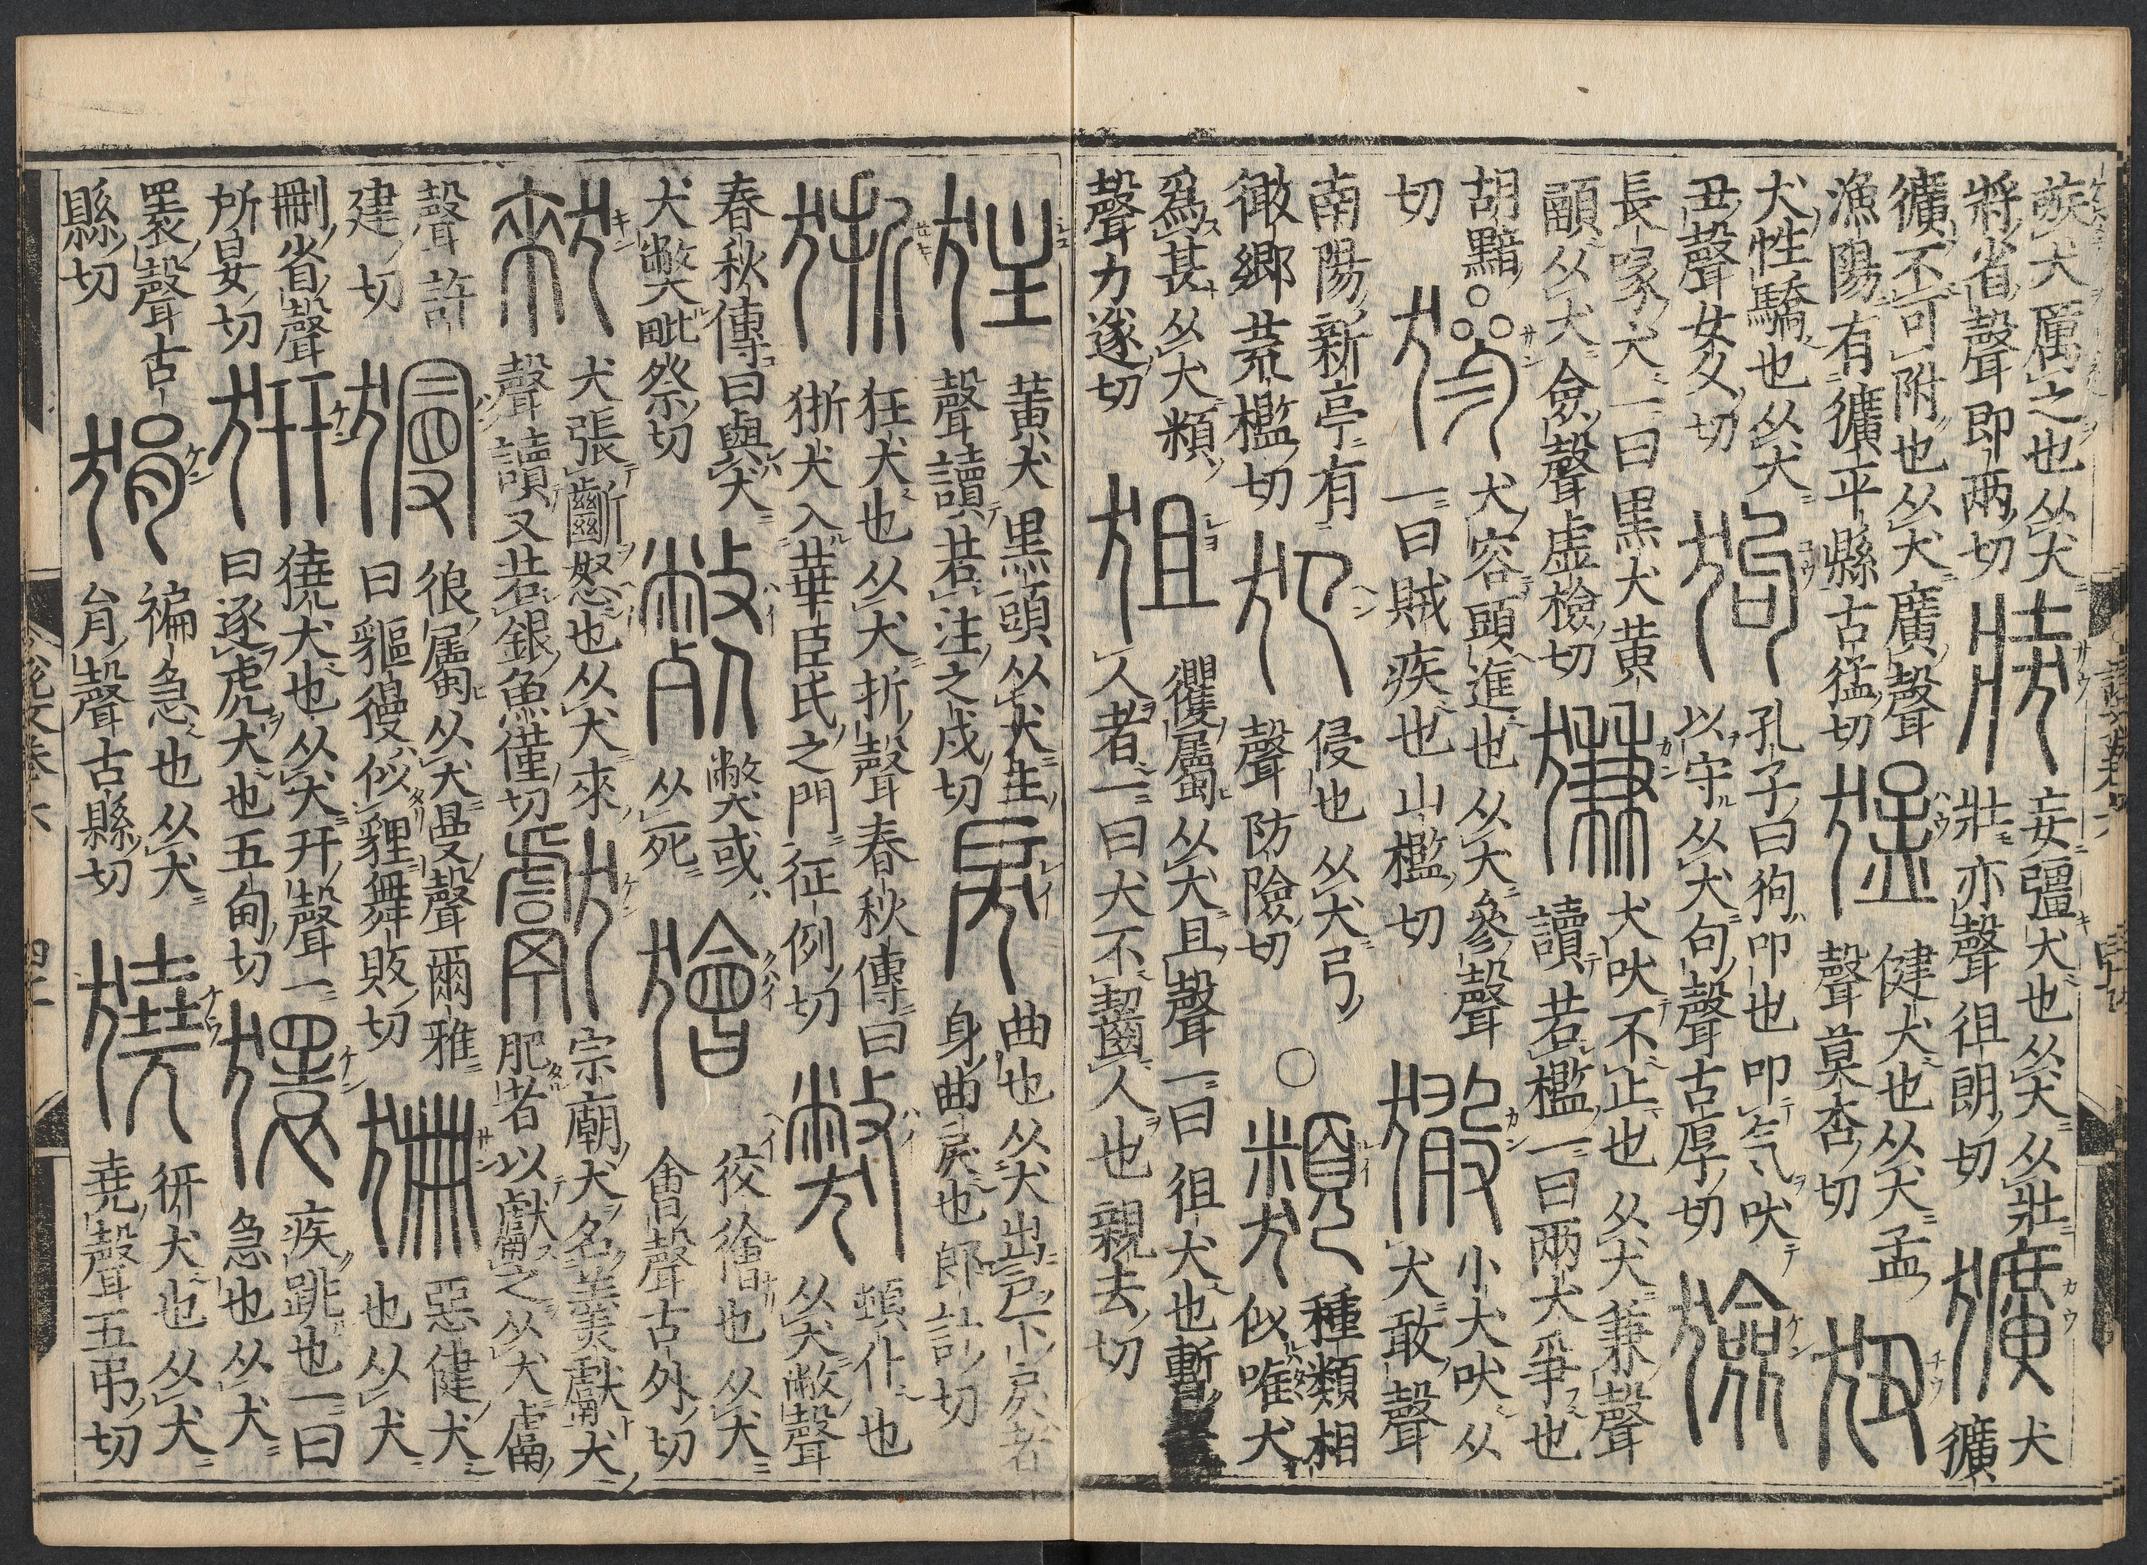 嗾犬厲之也从犬
將省聲即两切
奘
妄彊犬也从犬从壯
壯亦聲徂朗切
獷
犬
獷
獷不可附也从犬廣聲
漁陽有獷平縣古猛切
猛
健犬也从犬孟
聲莫杏切
狃
犬性驕也从犬
丑聲女久切
狗
孔子曰狗叩也叩气吠
以守从犬句聲古厚切
獫
長喙犬一曰黒犬黄
頤从犬僉聲虚檢切
㺌
犬吠不止也从犬兼聲
讀若檻一曰两犬爭也
胡黯
切
㺑
犬容頭進也从犬參聲
一曰賊疾也山檻切
㺖
小犬吠从
犬敢聲
南陽新亭有
㺖鄉荒檻切
犯
侵也从犬㔾
聲防險切
○
類
種類相
似唯犬
爲甚从犬頪
聲力遂切
狙
玃屬从犬且聲一曰狙犬也暫
人者一曰犬不齧人也親去切
狂
黄犬黒頭从犬主
聲讀若注之戍切
戾
曲也从犬出戶下戾者
身曲戾也郎計切
狾
狂犬也从犬折聲春秋傳曰
狾犬入華臣氏之門征例切
獘
頓仆也
从犬敝聲
春秋傳曰與犬
犬獘毗祭切
斃
獘或
从死
獪
狡獪也从犬
會聲古外切
㹞
犬張齗怒也从犬來
聲讀又若銀魚僅切
獻
宗廟犬名羹獻犬
肥者以獻之从犬鬳
聲許
建切
獌
狼屬从犬曼聲爾雅
曰貙獌似貍舞販切
狦
惡健犬
也从犬
刪省聲
所晏切
豣
獟犬也从犬幵聲一
曰逐虎犬也五甸切
獧
疾跳也一曰
急也从犬
瞏聲古
縣切
狷
褊急也从犬
肙聲古縣切
獟
㹿犬也从犬
堯聲五弔切
說文卷六
四十二